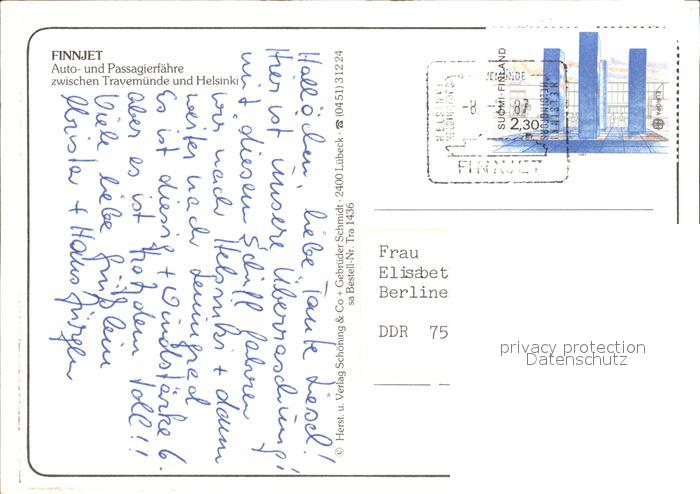 FINNJET
Auto- und Passagierfähre
zwischen Travemünde und Helsinki
Hallöchen, liebe Tante Liesel!
Hier ist unsere Überraschung!
mit diesem Schiff fahren
wir nach Helsinki + dann
weiter nach Leningrad
Es ist diesig + Windstärke 6.
aber es ist trotzdem toll!!
Viele liebe Grüßlein
Christa + Hans Jürgen
© Herst. u. Verlag Schöning & Co + Gebrüder Schmidt · 2400 Lübeck · ☎ (04 51) 3 12 24
sa Bestell-Nr. Tra 1436
SUOMI·FINLAND
2,30
EUROPA
87
FINNJET
Frau
Elisabet
Berline
DDR 75
privacy protection
Datenschutz